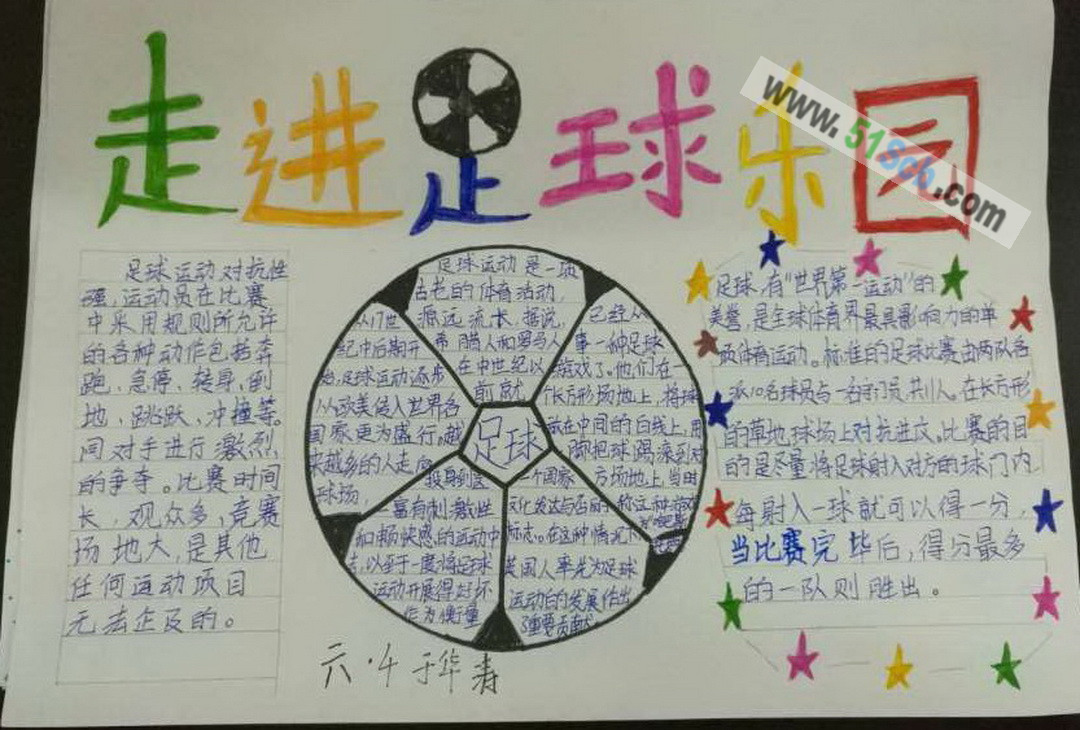 走进足球乐园
www.51Scb.com
足球运动对抗性
强,运动员在比赛
中采用规则所允许
的各种动作包括奔
跑、急停、转身、倒
地、跳跃、冲撞等。
同对手进行激烈
的争夺。比赛时间
长,观众多,竞赛
场地大,是其他
任何运动项目
无法企及的。
足球运动是一项
古老的体育活动,
源远流长,据说,
希腊人和罗马人
在中世纪以
前就
已经从
事一种足球
游戏了。他们在一
个长方形场地上,将球
放在中间的白线上,用
脚把球踢滚到对
方场地上,当时
称这种游戏
从17世
纪中后期开
始,足球运动逐步
从欧美传入世界各
国家更为盛行。越
来越多的人走向
球场,
投身到这
一富有刺激性
和畅快感的运动中
去,以至于一度将足球
运动开展得好坏
作为衡量
一个国家
文化发达与否的
标志。在这种情况下
英国人率先为足球
运动的发展作出
了重要贡献
足球
足球,有“世界第一运动”的
美誉,是全球体育界最具影响力的单
项体育运动。标准的足球比赛由两队各
派10名球员与一名守门员,共11人。在长方形
的草地球场上对抗进攻。比赛的目
的是尽量将足球射入对方的球门内,
每射入一球就可以得一分,
当比赛完毕后,得分最多
的一队则胜出。
六·4 于华寿